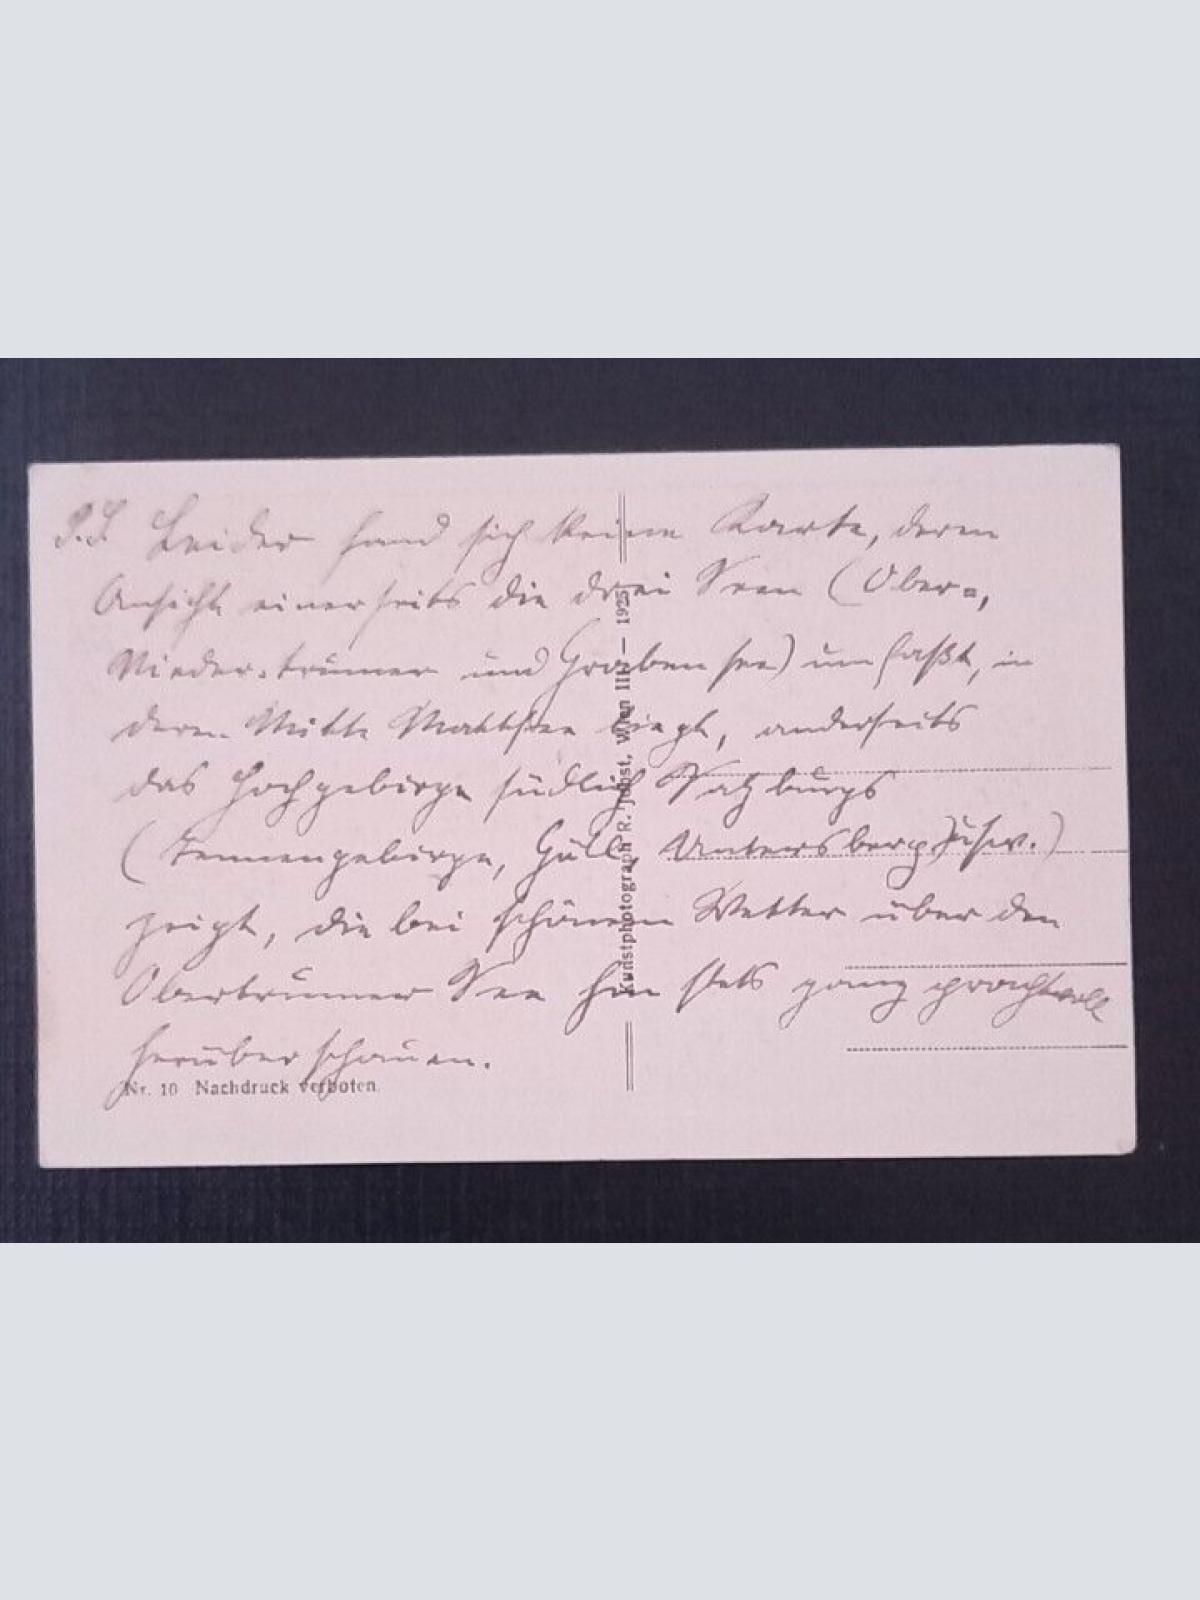 P.S. Leider fand sich keine Karte, deren
Ansicht einerseits die drei Seen (Ober-,
Nieder-trumer und Grabensee) umfaßt, in
deren Mitte Mattsee liegt, anderseits
das Hochgebirge südlich Salzburgs
(Tennengebirge, Göll, Untersberg usw.)
zeigt, die bei schönem Wetter über den
Obertrumer See hin stets ganz prachtvoll
herüberschauen.
Nr. 10 Nachdruck verboten.
Kunstphotograph R. Jobst, Wien III — 1925